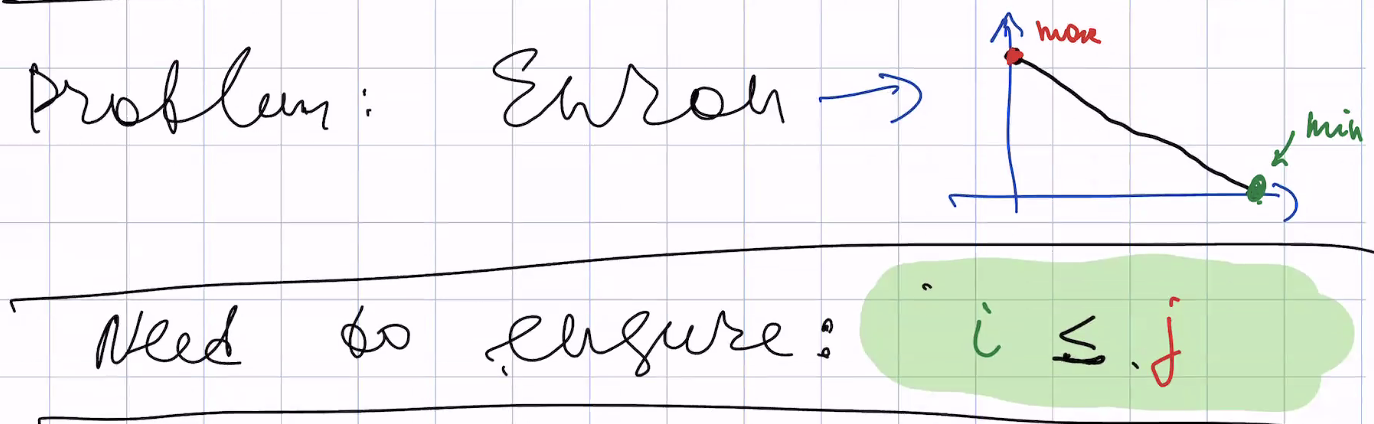 Problem: Enron →
max
min
Need to ensure: i ≤ j